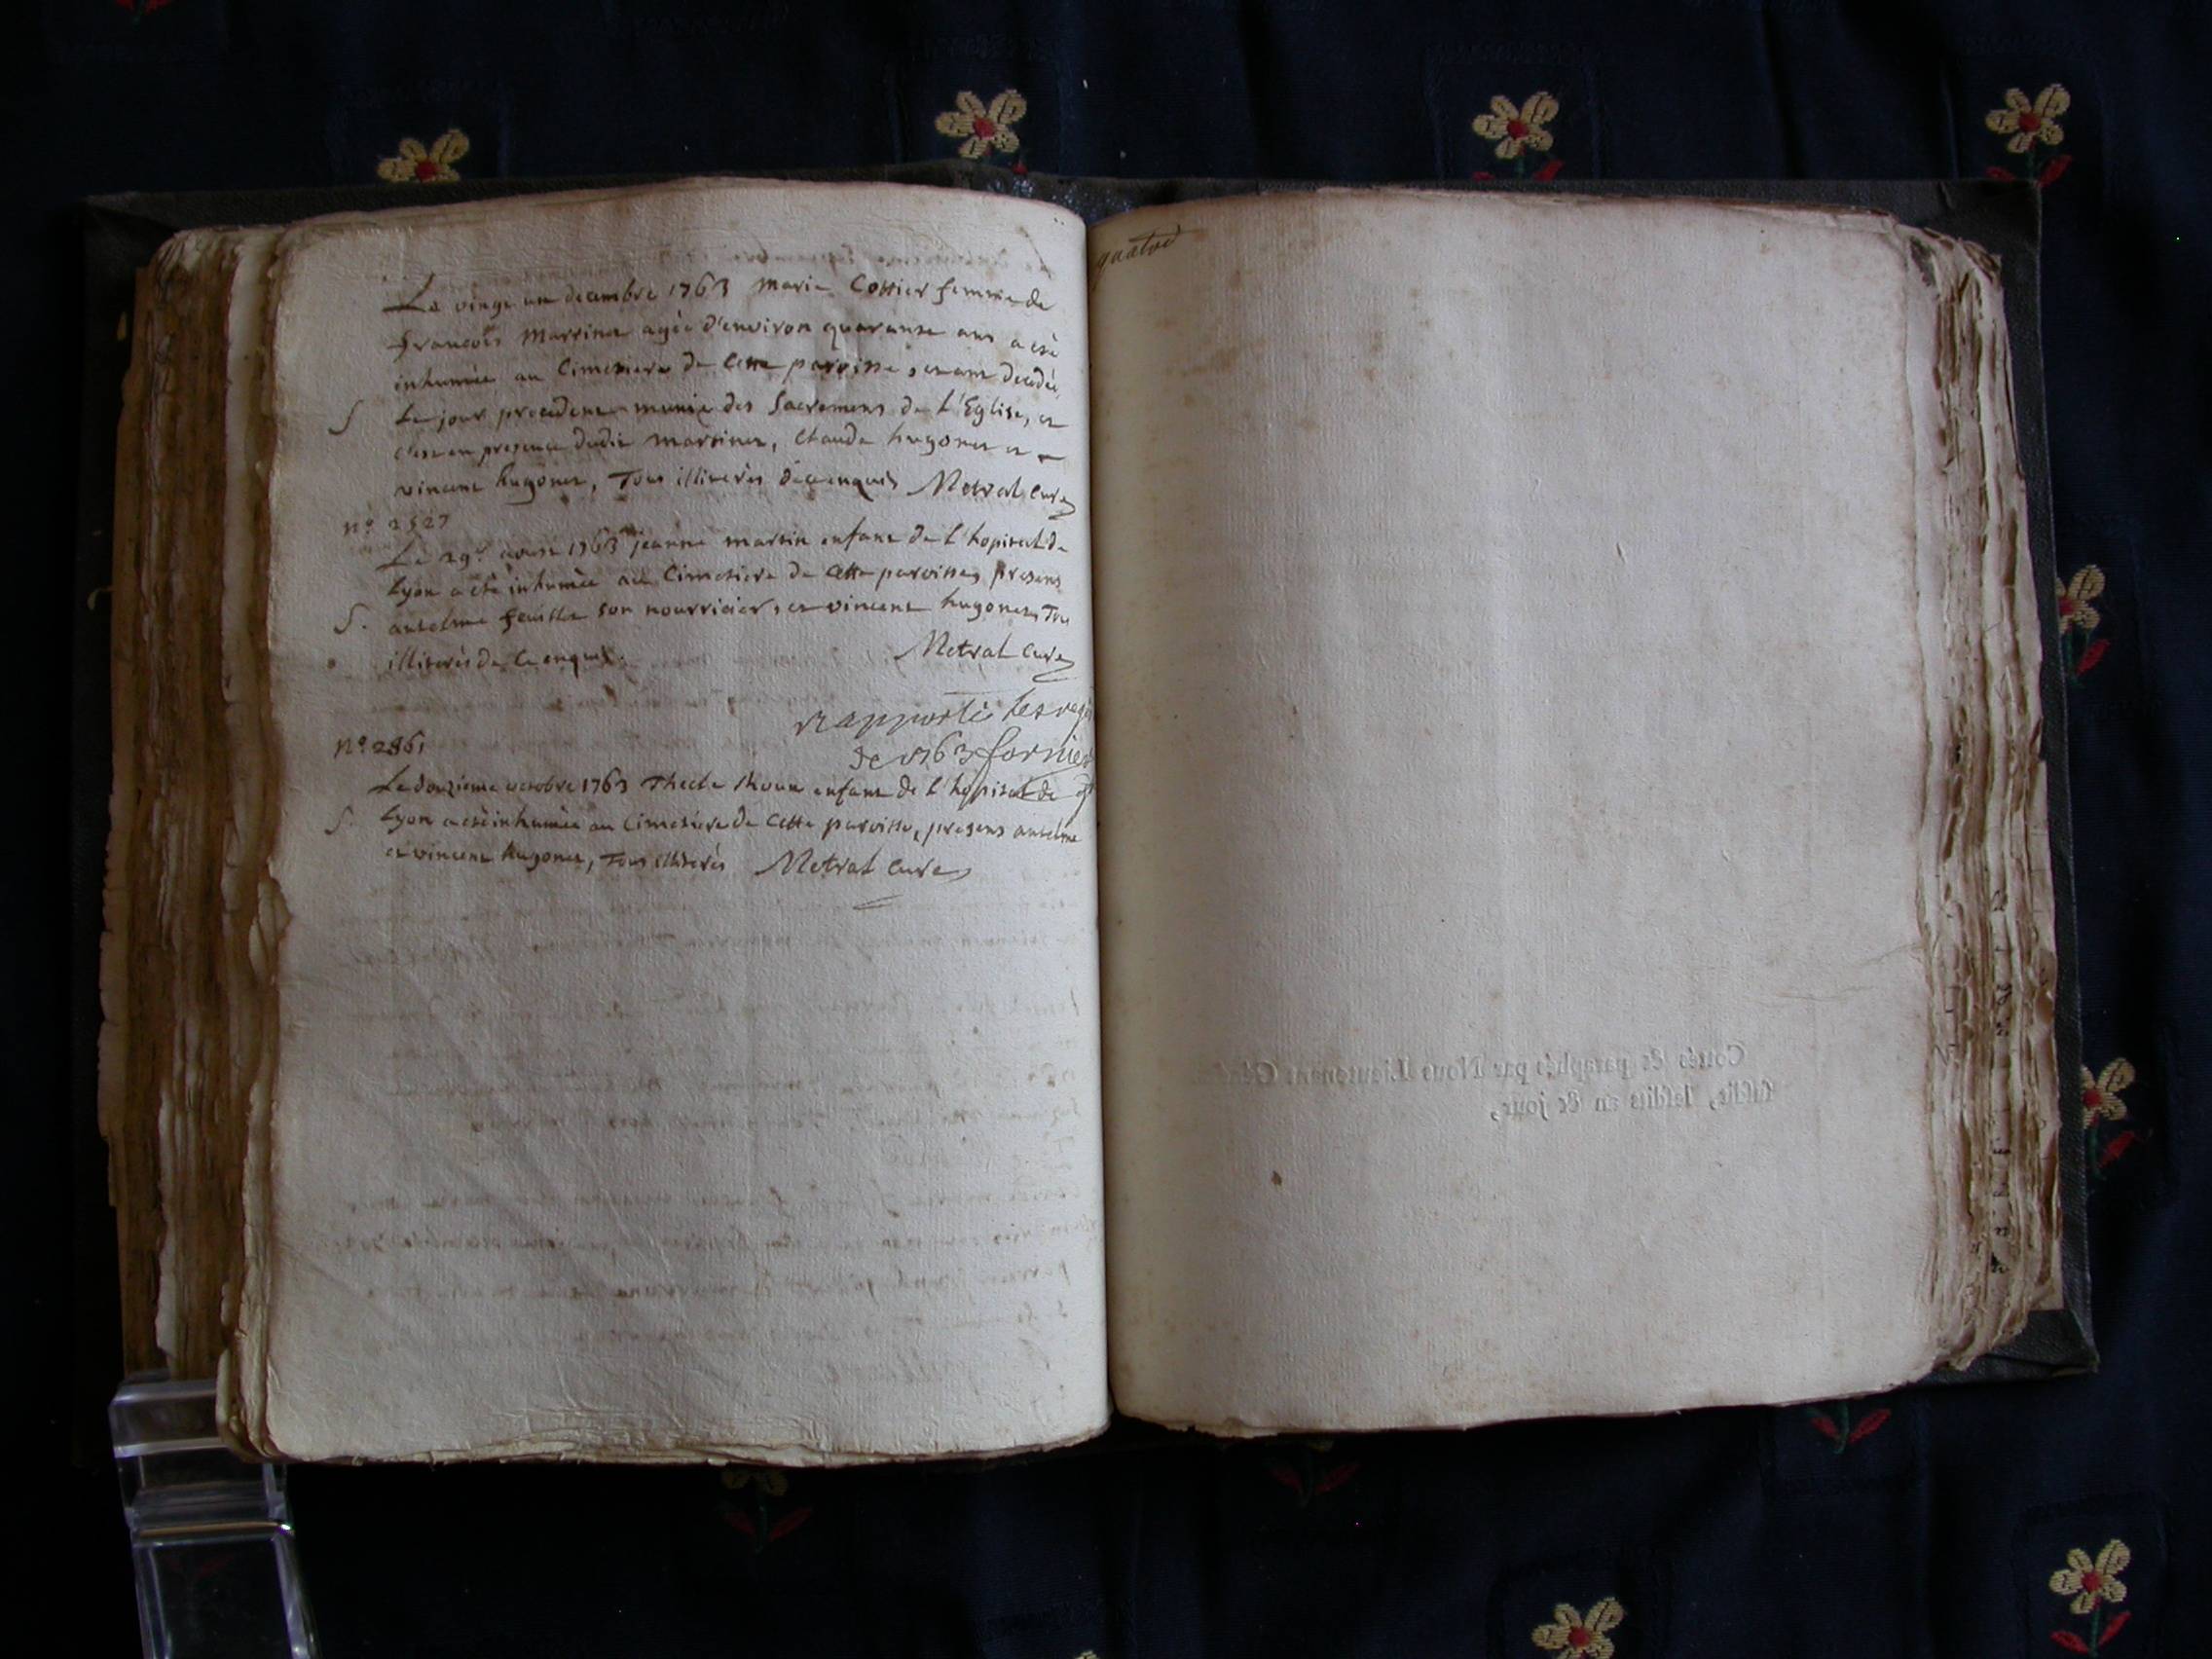 Le vingt un decembre 1763 Marie Cottier femme de
francois Martinet agée d'environ quarante ans a eté
inhumée au Cimetiere de Cette paroisse, etant decedée
S Le jour precedent munie des Sacremens de l'Eglise, et
c'est en presence dudit martinet, Claude hugonet et
vincent hugonet, Tous illiterés de ce enquis Metral Curé
n° 2527
Le 29e aoust 1763 jeanne martin enfant de l'hopital de
Lyon a eté inhumée au Cimetiere de Cette paroisse, presens
S. anselme feuillet son nourricier, et vincent hugonet, Tous
illiterés de Ce enquis. Metral Curé
rapporté les
de 1763 fornier
n° 2861
Le douzieme octobre 1763 Thecle enfant de l'hopital de
S. Lyon a eté inhumée au Cimetiere de Cette paroisse, presens anselme
et vincent hugonet, Tous illiterés Metral Curé
quatre
Cottés & paraphés par Nous Lieutenant
susdit, lesdits an & jour,